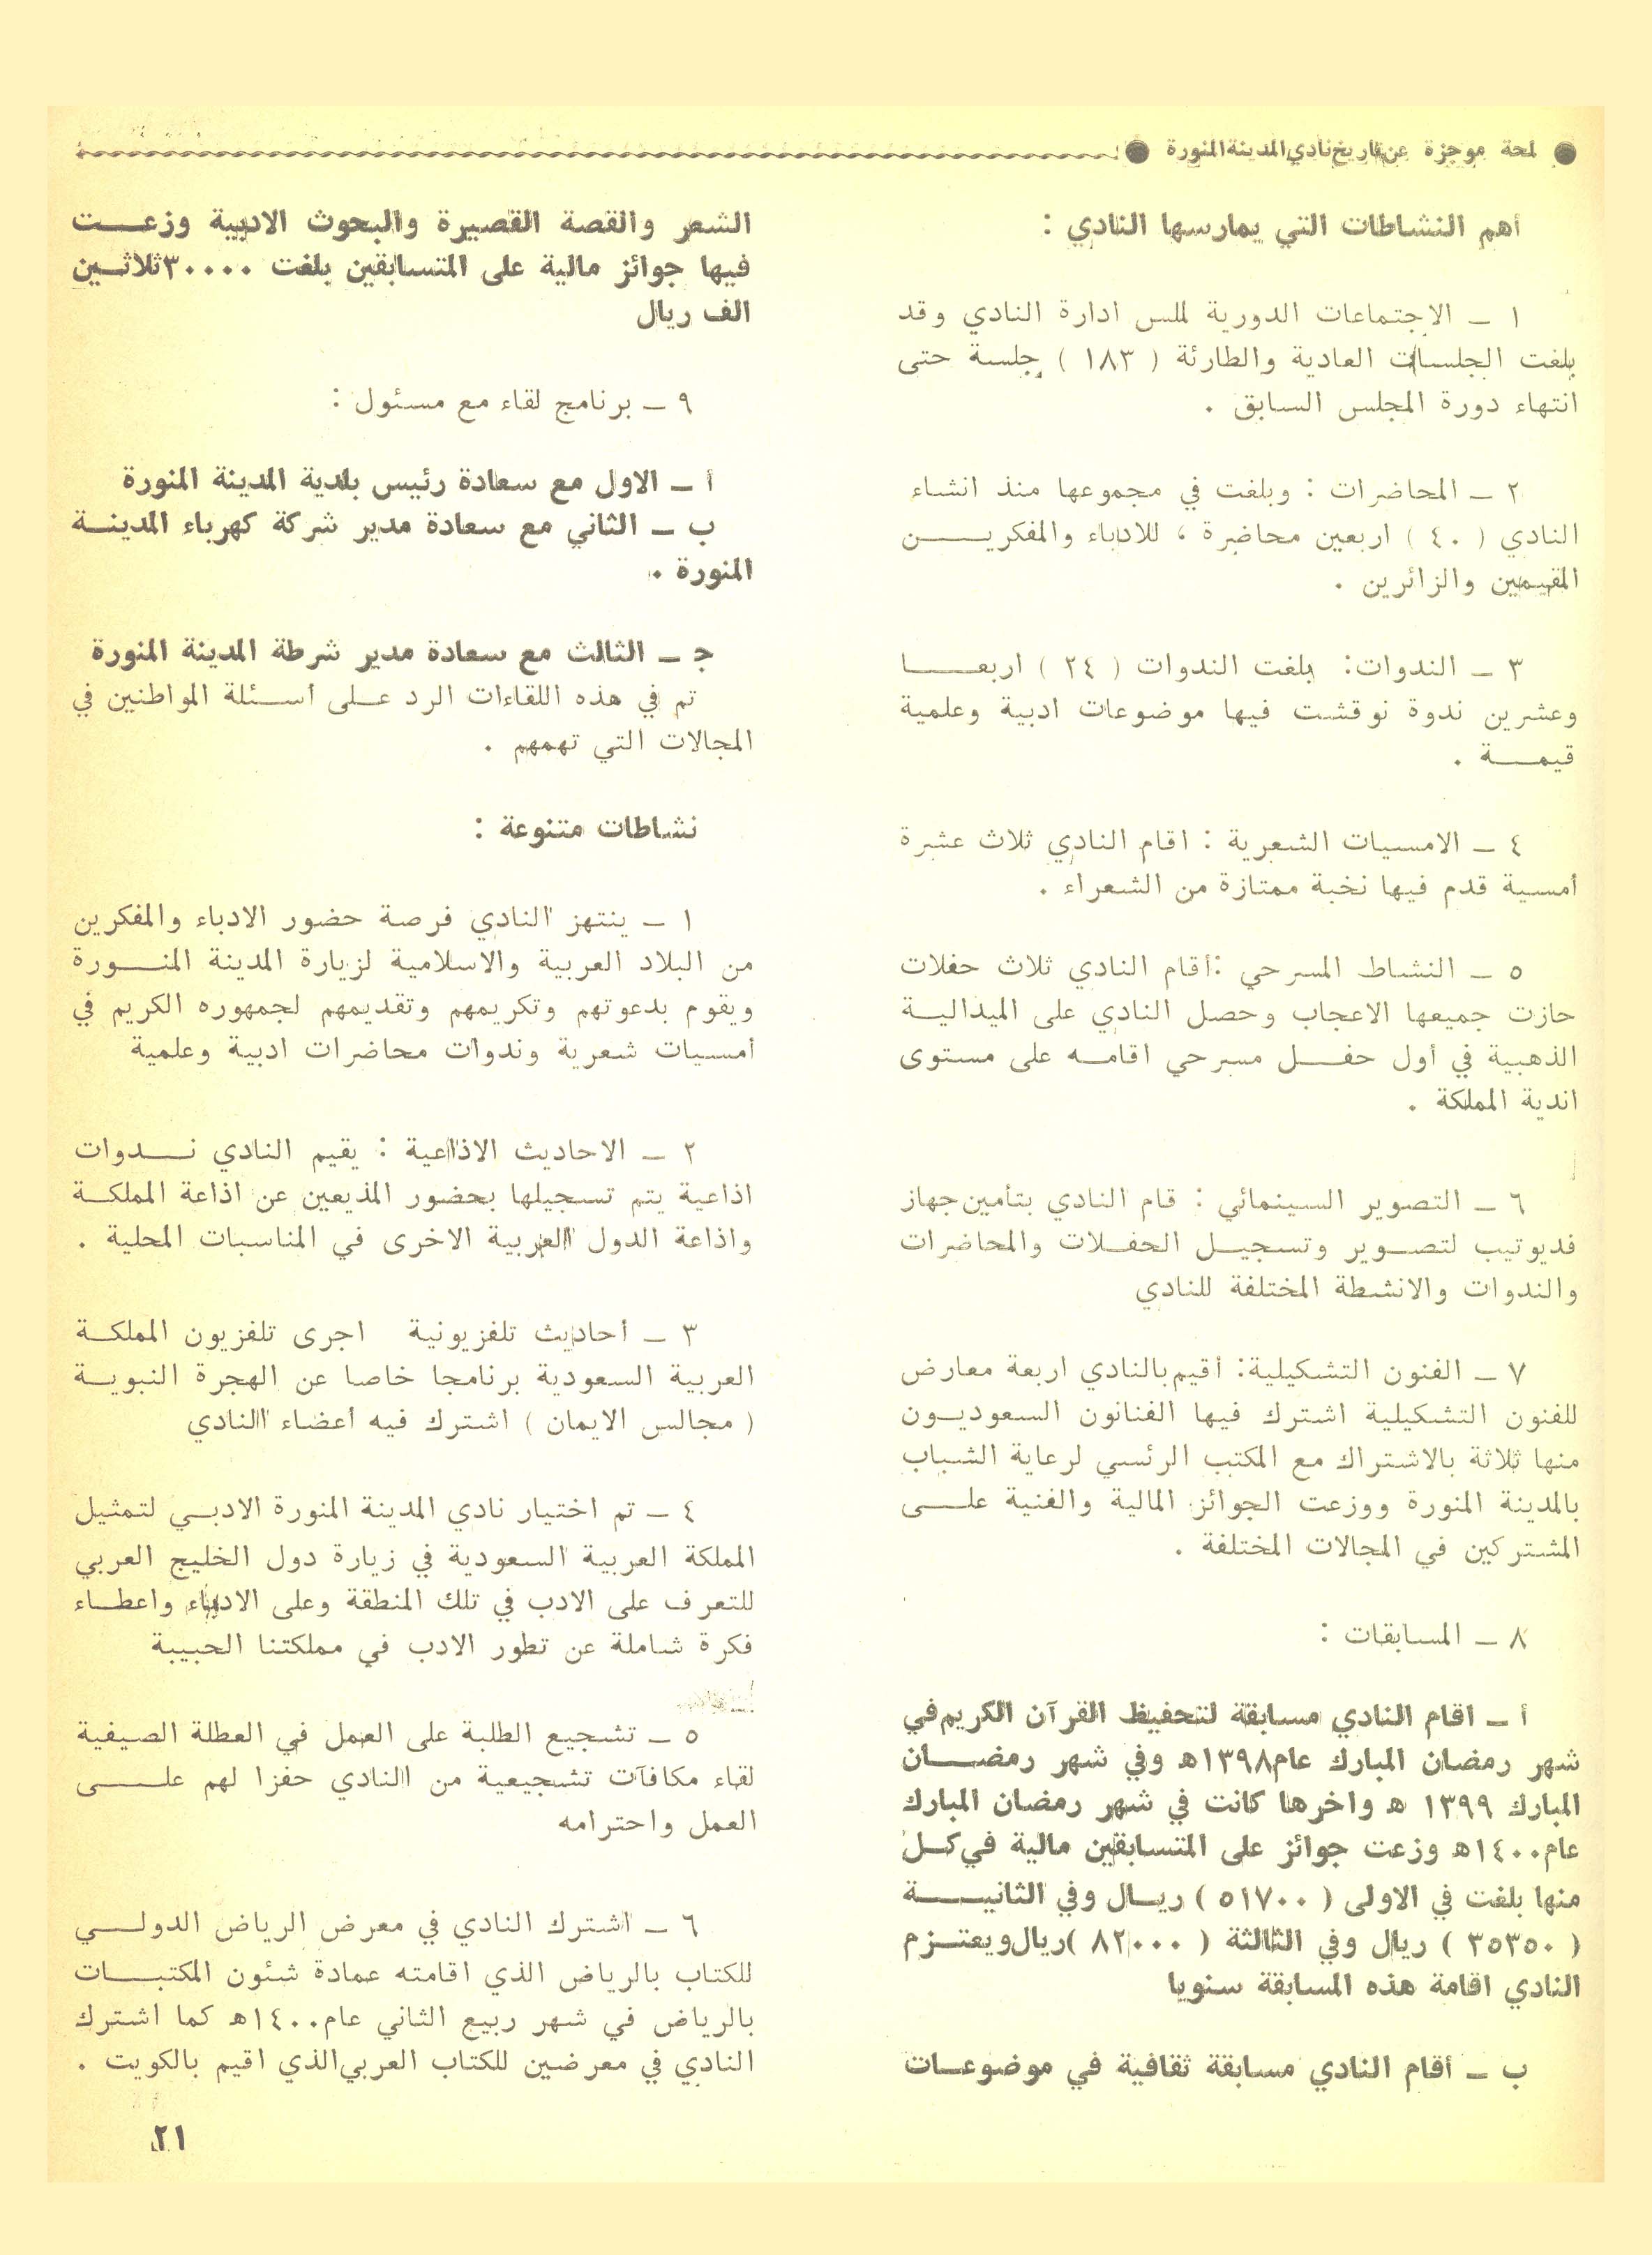 ● لمحة موجزة عن تاريخ نادي المدينة المنورة ●
أهم النشاطات التي يمارسها النادي :
١ ـ الاجتماعات الدورية لملس ادارة النادي وقد
بلغت الجلسات العادية والطارئة ( ١٨٣ ) جلسة حتى
انتهاء دورة المجلس السابق .
٢ ـ المحاضرات : وبلغت في مجموعها منذ انشاء
النادي ( ٤٠ ) اربعين محاضرة ، للادباء والمفكريـــن
المقيمين والزائرين .
٣ ـ الندوات: بلغت الندوات ( ٢٤ ) اربعـــا
وعشرين ندوة نوقشت فيها موضوعات ادبية وعلمية
قيمــة .
٤ ـ الامسيات الشعرية : اقام النادي ثلاث عشرة
أمسية قدم فيها نخبة ممتازة من الشعراء .
٥ ـ النشاط المسرحي :أقام النادي ثلاث حفلات
حازت جميعها الاعجاب وحصل النادي على الميداليـة
الذهبية في أول حفـــل مسرحي اقامـه على مستوى
اندية المملكة .
٦ ـ التصوير السينمائي : قام النادي بتأمين جهاز
فديوتيب لتصـوير وتسجيـل الحفـلات والمحاضرات
والندوات والانشطة المختلفة للنادي
٧ ـ الفنون التشكيلية: أقيم بالنادي اربعة معارض
للفنون التشكيلية اشترك فيها الفنانون السعوديـون
منها ثلاثة بالاشتراك مع المكتب الرئسي لرعاية الشباب
بالمدينة المنورة ووزعت الجوائز المالية والفنية علــى
المشتركين في المجالات المختلفة .
٨ ـ المسابقات :
أ ـ اقام النادي مسابقة لتحفيظ القرآن الكريم في
شهر رمضان المبارك عام١٣٩٨هـ وفي شهر رمضــان
المبارك ١٣٩٩ هـ واخرها كانت في شهر رمضان المبارك
عام١٤٠٠هـ وزعت جوائز على المتسابقين مالية في كـل
منها بلغت في الاولى ( ٥١٧٠٠ ) ريـال وفي الثانيــــة
( ٣٥٣٥٠ ) ريال وفي الثالثة ( ٨٢٠٠٠ )ريال ويعتـزم
النادي اقامة هذه المسابقة سنويا
ب ـ أقام النادي مسابقة ثقافية في موضوعـات
الشعر والقصة القصيرة والبحوث الادبية وزعـــت
فيها جوائز مالية على المتسابقين بلغت ٣٠٠٠٠ثلاثـين
الف ريال
٩ ـ برنامج لقاء مع مسئول :
أ ـ الاول مع سعادة رئيس بلدية المدينة المنورة
ب ـ الثاني مع سعادة مدير شركة كهرباء المدينــة
المنورة .
جـ ـ الثالث مع سعادة مدير شرطة المدينة المنورة
تم في هذه اللقاءات الرد عـلى أسـئلة المواطنين في
المجالات التي تهمهم .
نشاطات متنوعة :
١ ـ ينتهز النادي فرصة حضور الادباء والمفكرين
من البلاد العربية والاسلامية لزيارة المدينة المنــورة
ويقوم بدعوتهم وتكريمهم وتقديمهم لجمهوره الكريم في
أمسيات شعرية وندوات محاضرات ادبية وعلمية
٢ ـ الاحاديث الاذاعية : يقيم النادي نــدوات
اذاعية يتم تسجيلها بحضور المذيعين عن اذاعة المملكـة
واذاعة الدول العربية الاخرى في المناسبات المحلية .
٣ ـ أحاديث تلفزيونية اجرى تلفزيون المملكـة
العربية السعودية برنامجا خاصا عن الهجرة النبويـة
( مجالس الايمان ) اشترك فيه أعضاء النادي
٤ ـ تم اختيار نادي المدينة المنورة الادبـي لتمثيل
المملكة العربية السعودية في زيارة دول الخليج العربي
للتعرف على الادب في تلك المنطقة وعلى الادباء واعطـاء
فكرة شاملة عن تطور الادب في مملكتنا الحبيبة
٥ ـ تشجيع الطلبة على العمل في العطلة الصيفية
لقاء مكافآت تشجيعية من النادي حفزا لهم علـــى
العمل واحترامه
٦ ـ اشترك النادي في معرض الرياض الدولــي
للكتاب بالرياض الذي اقامته عمادة شئون المكتبـات
بالرياض في شهر ربيع الثاني عام١٤٠٠هـ كما اشترك
النادي في معرضين للكتاب العربي الذي اقيم بالكويت .
٢١